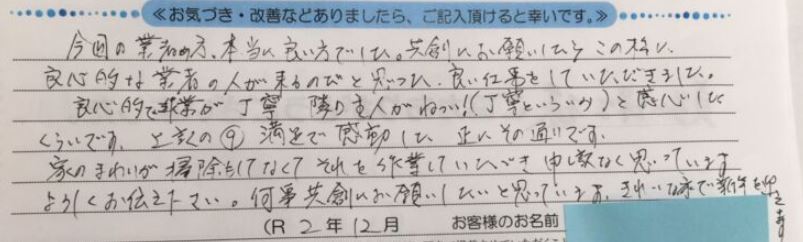 ≪お気づき・改善などありましたら、ご記入頂けると幸いです。≫
今回の業者の方、本当に良い方でした。共創にお願いしたらこの様に
良心的な業者の人が来るのだと思った。良い仕事をしていただきました。
良心的で作業が丁寧 隣り主人がねつい!(丁寧といういみ)と感心した
くらいです。上記の⑨満足で感動した 正にその通りです。
家のまわりが掃除もしてなくて それを作業していただき申し訳なく思っています
よろしくお伝え下さい。何事共創にお願いしたいと思っています。きれいな家で新年を
(R 2年12月 お客様のお名前